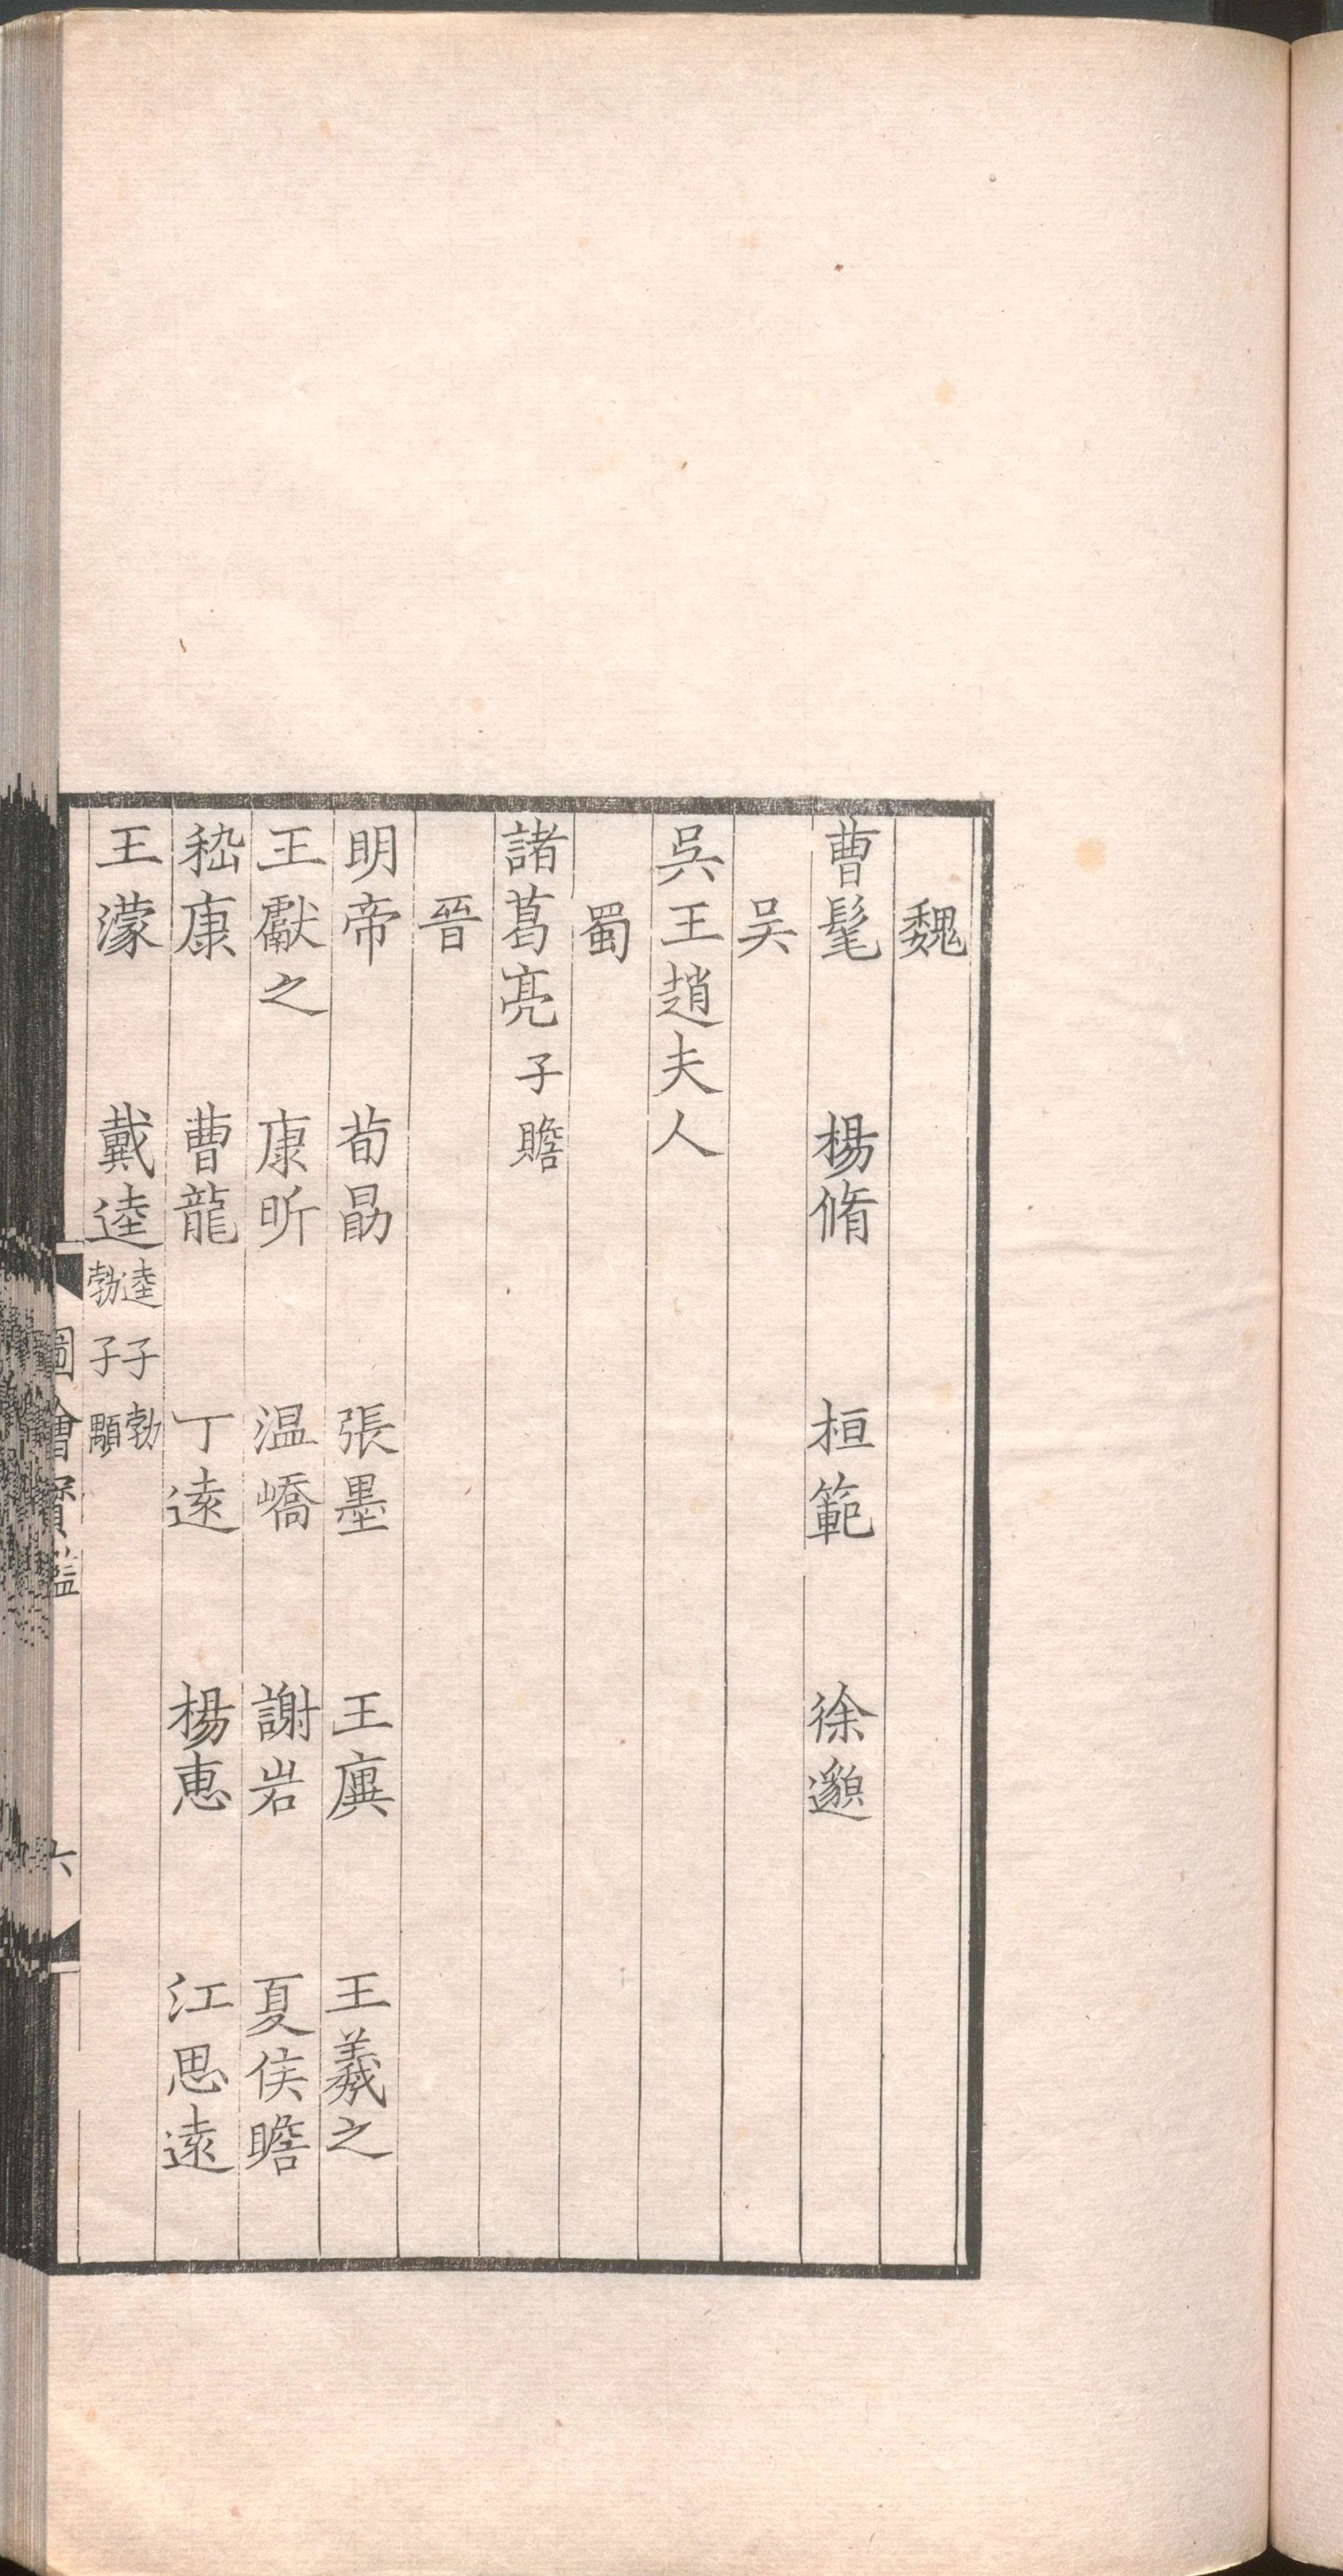 魏
曹髦 楊脩 桓範 徐邈
吴
吳王趙夫人
蜀
諸葛亮 子瞻
晉
明帝 荀勗 張墨 王廙 王羲之
王獻之 康昕 温嶠 謝岩 夏侯瞻
嵇康 曹龍 丁遠 楊惠 江思遠
王濛 戴逵 逵子勃 勃子顒
圖繪寳鑑 六